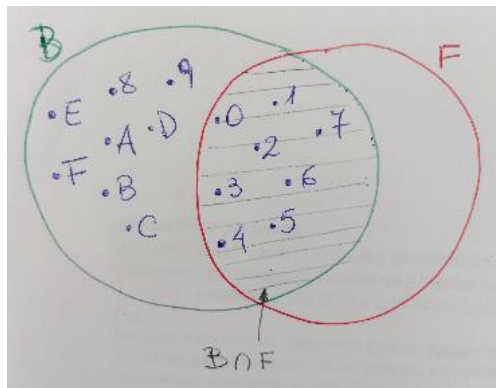 B
F
E
8
9
A
D
F
B
C
0
1
2
7
3
6
4
5
B∩F